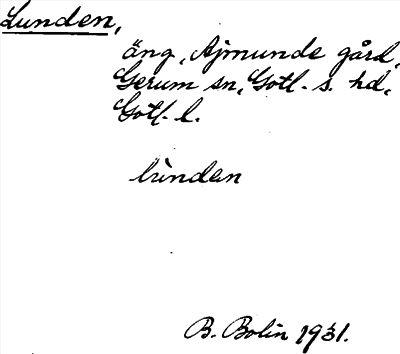 Lunden,
äng, Ajmunde gård,
Gerum sn, Gotl. s. hd,
Gotl. l.
lùnden
B. Bolin 1931.